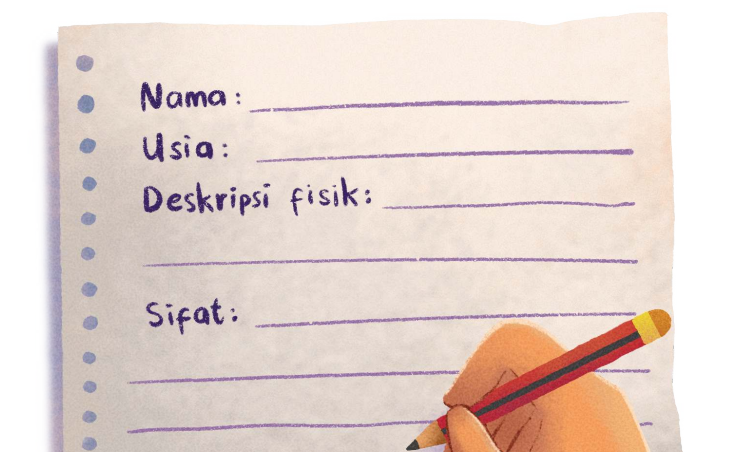 Nama:
Usia:
Deskripsi fisik:
Sifat: